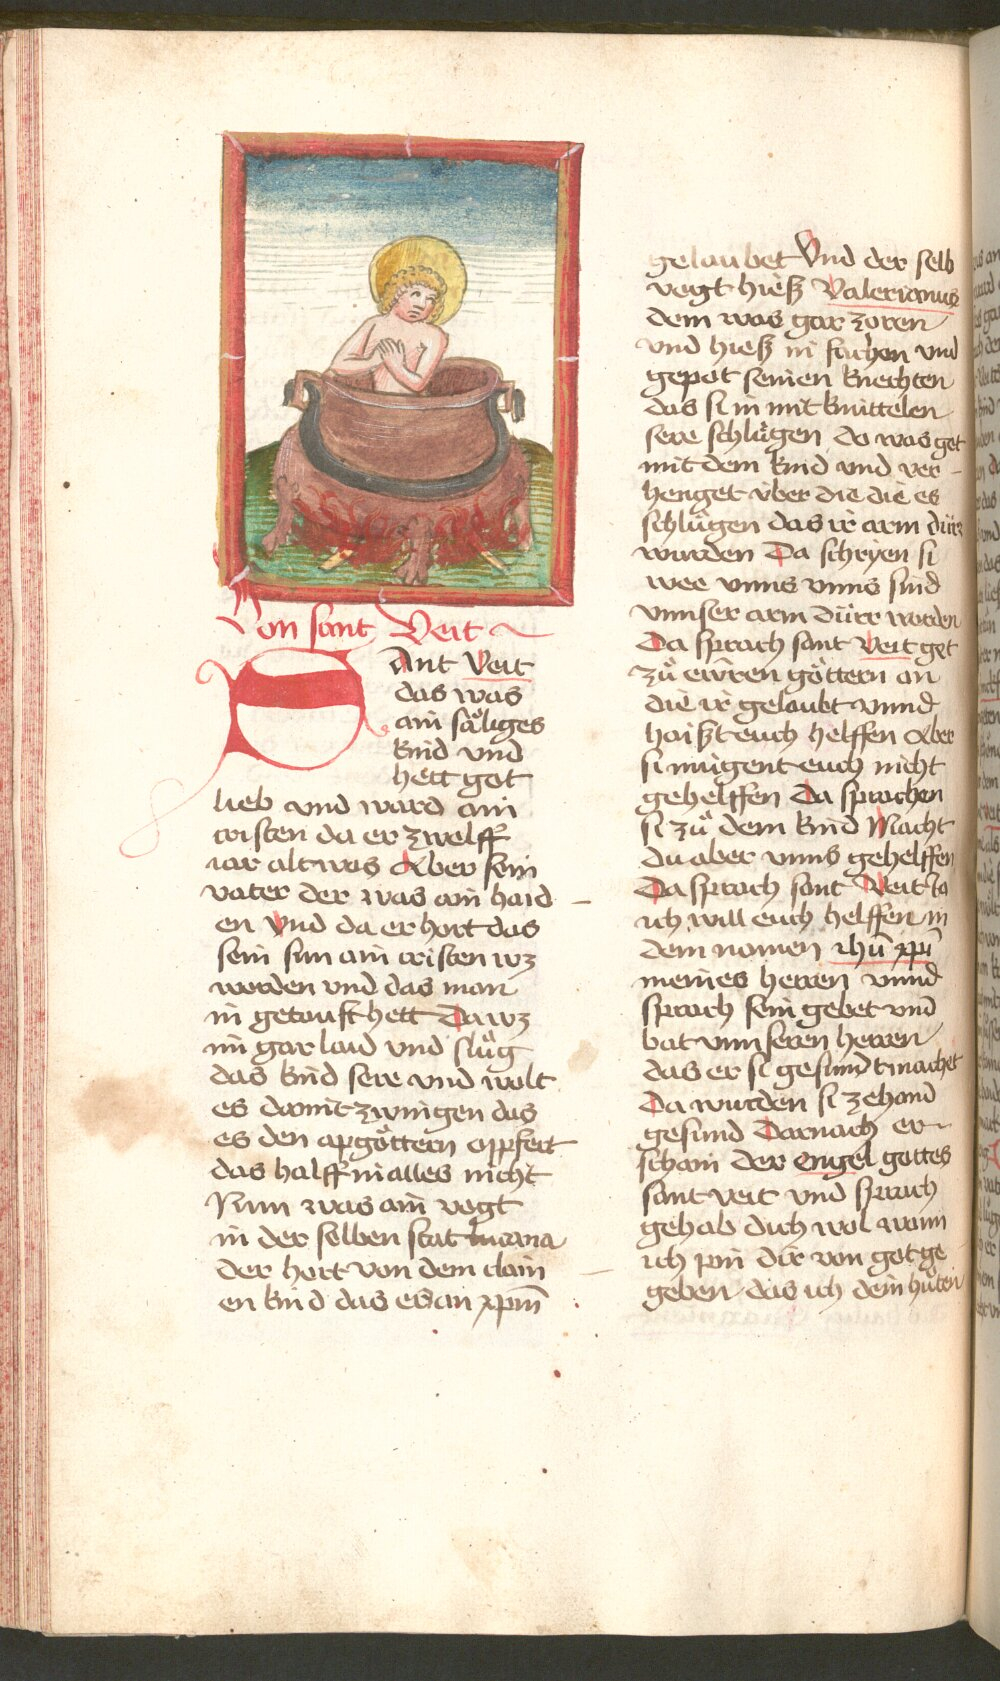 Von sant Veit
Sant Veit
das was
ain säliges
kind vnd
hett got
lieb vnd ward ain
cristen da er zwelff
iar alt was Aber sein
vater der was ain haid
en Vnd da er hort das
sein sun ain cristen wz
worden vnd das man
in getauft hett Da wz
im gar laid vnd slůg
das kind sere vnd wolt
es damit zwingen das
es den apgöttern opfert
das halff in alles nicht
Nun was ain vogt
in der selben stat lucana
der hort von dem clain
en kind das es an xpm̄
gelaubet Vnd der selb
vogt hieß Valerianus
dem was gar zoren
vnd hieß in fachen vnd
gepot seinen knechten
das si in mit knüttelen
sere schlůgen do was got
mit dem kind vnd ver
henget über die die es
schlůgen das ir arm dürr
wurden Da schryen si
wee vnns vnns sind
vnnser arm dürr worden
Da sprach sant Veit get
zů ewren göttern an
die ir gelaubt vnnd
haißt euch helffen Aber
si mugent euch nicht
gehelffen Da sprachen
si zů dem kind Macht
du aber vnns gehelffen
Da sprach sant Veit Ja
ich will euch helffen in
dem namen ihū xpī
meines herren vnnd
sprach sein gebet vnd
bat vnnseren herren
das er si gesunnt machet
Da wurden si zehand
gesund Darnach er
schain der engel gottes
sant veit vnd sprach
gehab dich wol wann
ich pin dir von got ge
geben das ich dein hüten